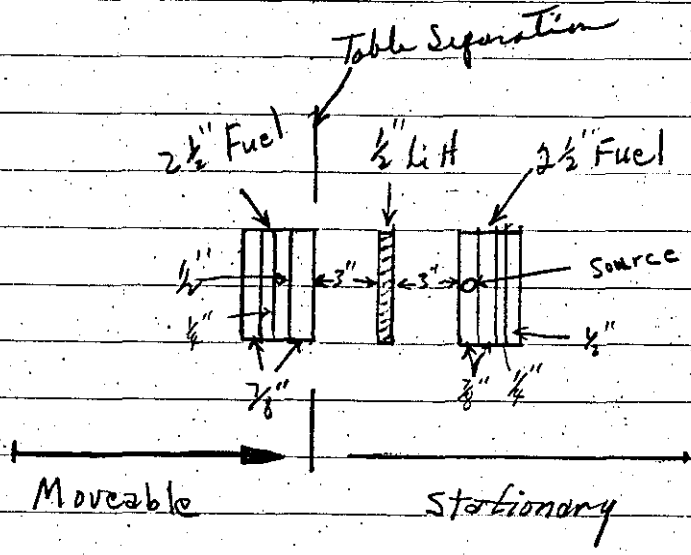 Table Separation
2 1/2" Fuel
1/2" LiH
2 1/2" Fuel
1/2"
3"
3"
Source
1/4"
1/2"
7/8"
7/8"
1/4"
Moveable
Stationary